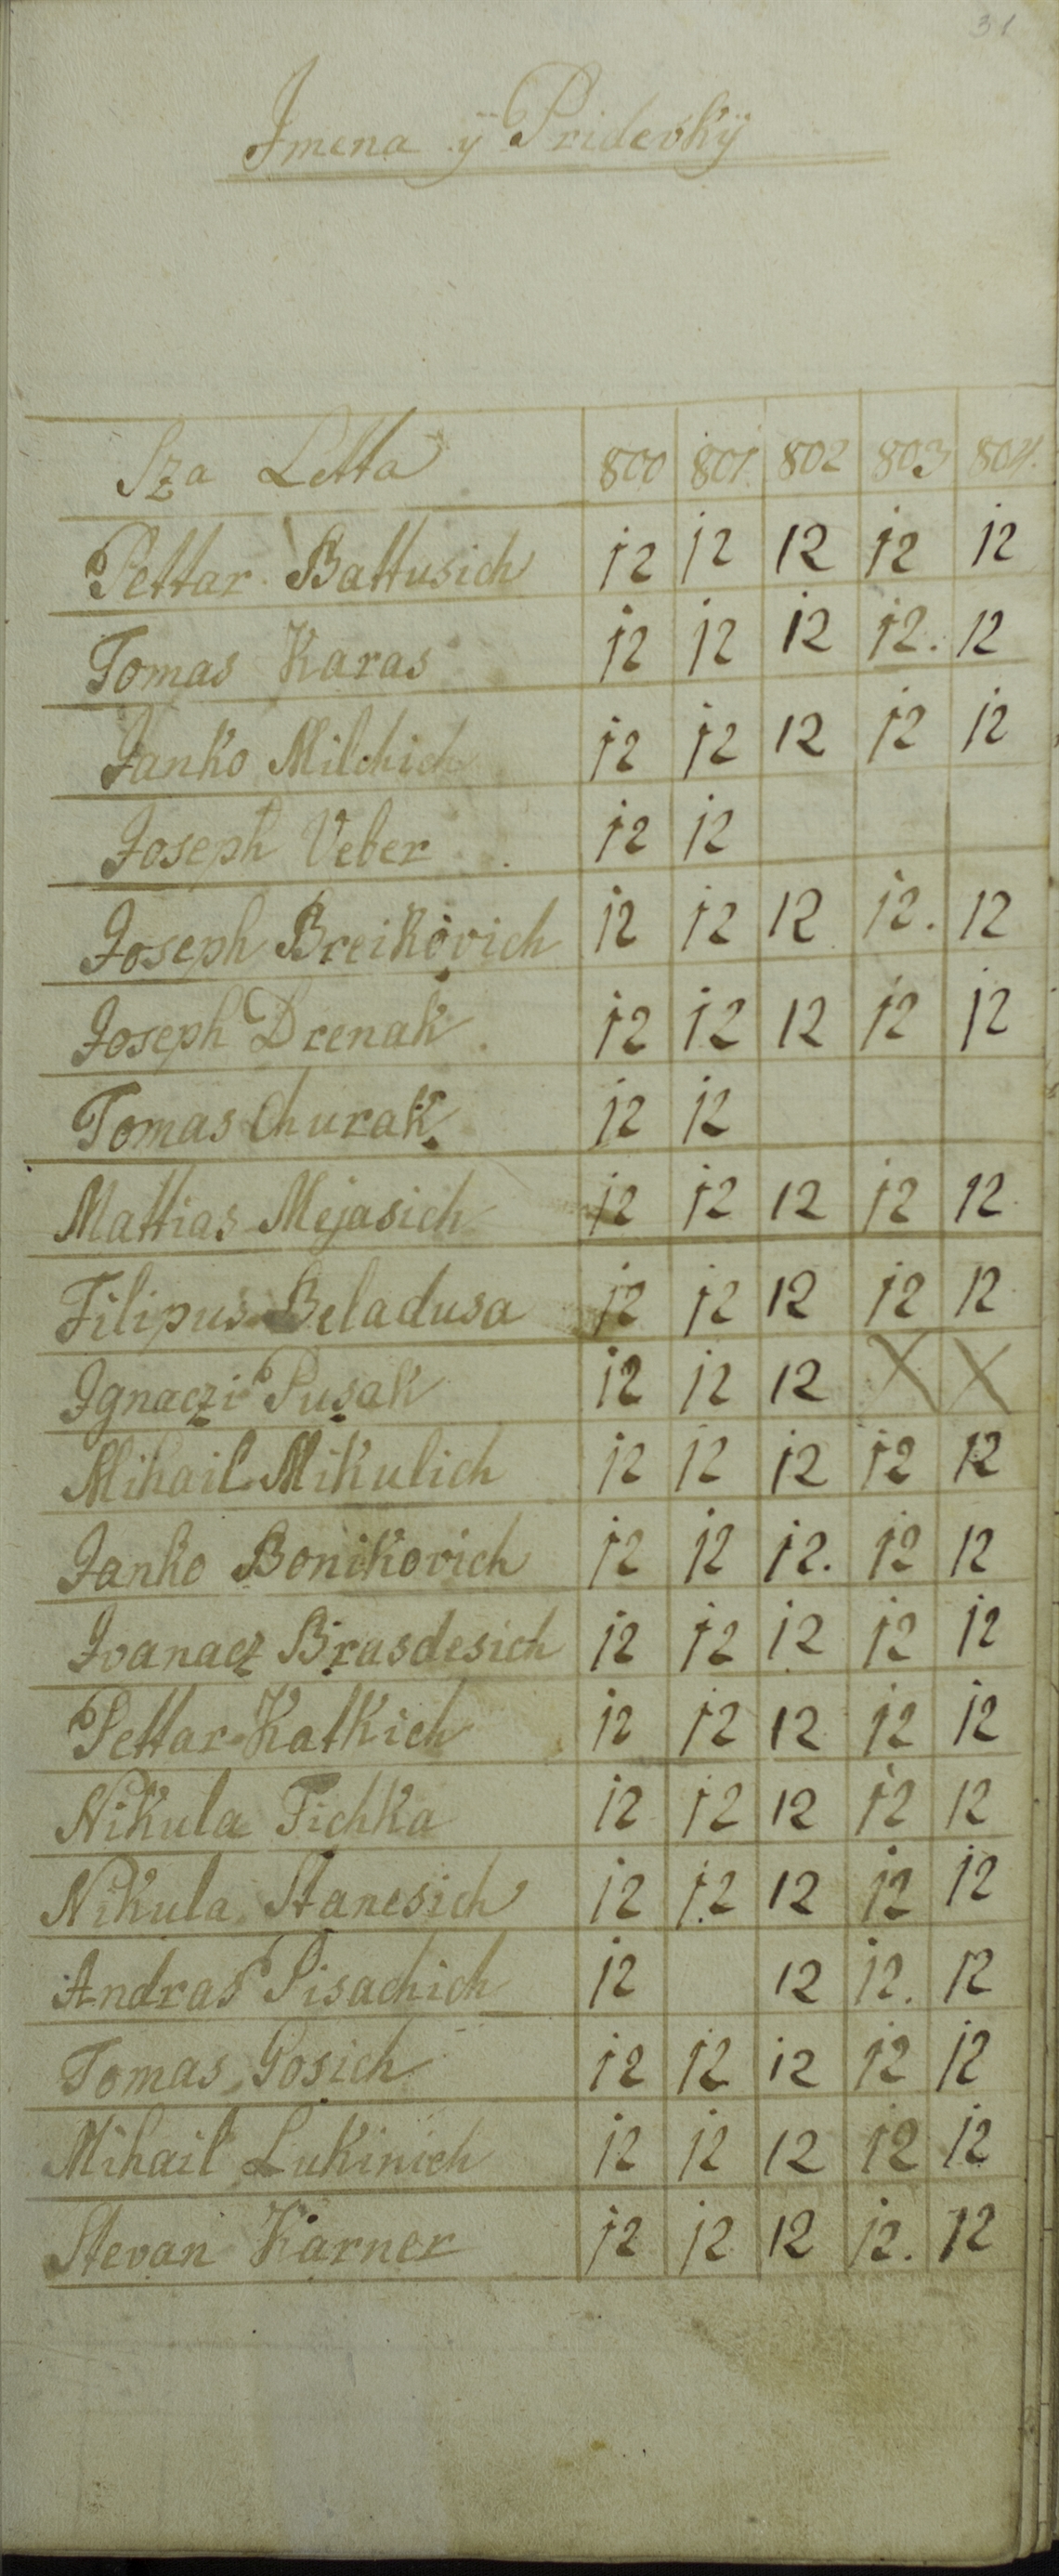 31
Jmena ÿ Pridevkÿ
Sza Letta 800 801. 802 803 804.
Pettar Battusich 12 12 12 12 12
Tomas Karas 12 12 12 12. 12
Janko Milchich 12 12 12 12 12
Joseph Veber 12 12
Joseph Breikovich 12 12 12 12. 12
Joseph Drenak 12 12 12 12 12
Tomas Churak 12 12
Mattias Mejasich 12 12 12 12 12
Filipus Beladusa 12 12 12 12 12
Ignaczi Pusak 12 12 12 X X
Mihail Mikulich 12 12 12 12 12
Janko Bonikovich 12 12 12. 12 12
Ivanacz Brasdesich 12 12 12 12 12
Pettar Katkich 12 12 12 12 12
Nikula Fichka 12 12 12 12 12
Nikula Stanesich 12 12 12 12 12
Andras Pisachich 12 12 12. 12
Tomas Gosich 12 12 12 12 12
Mihail Lukinich 12 12 12 12 12
Stevan Karner 12 12 12 12. 12